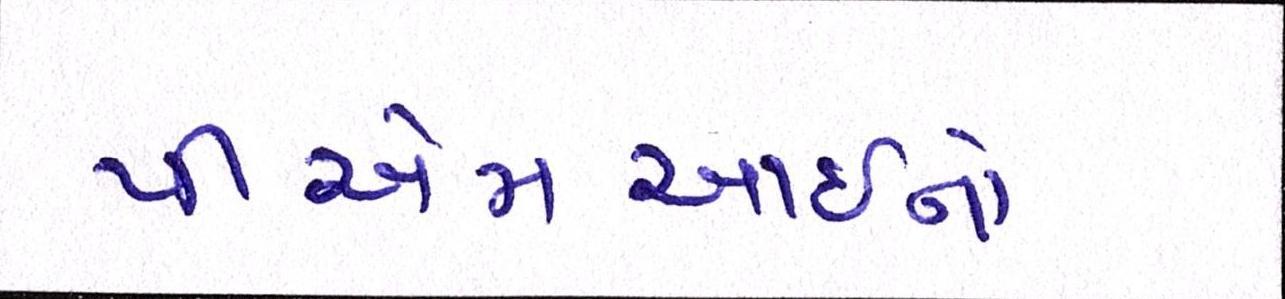 પીએમઆઈનો